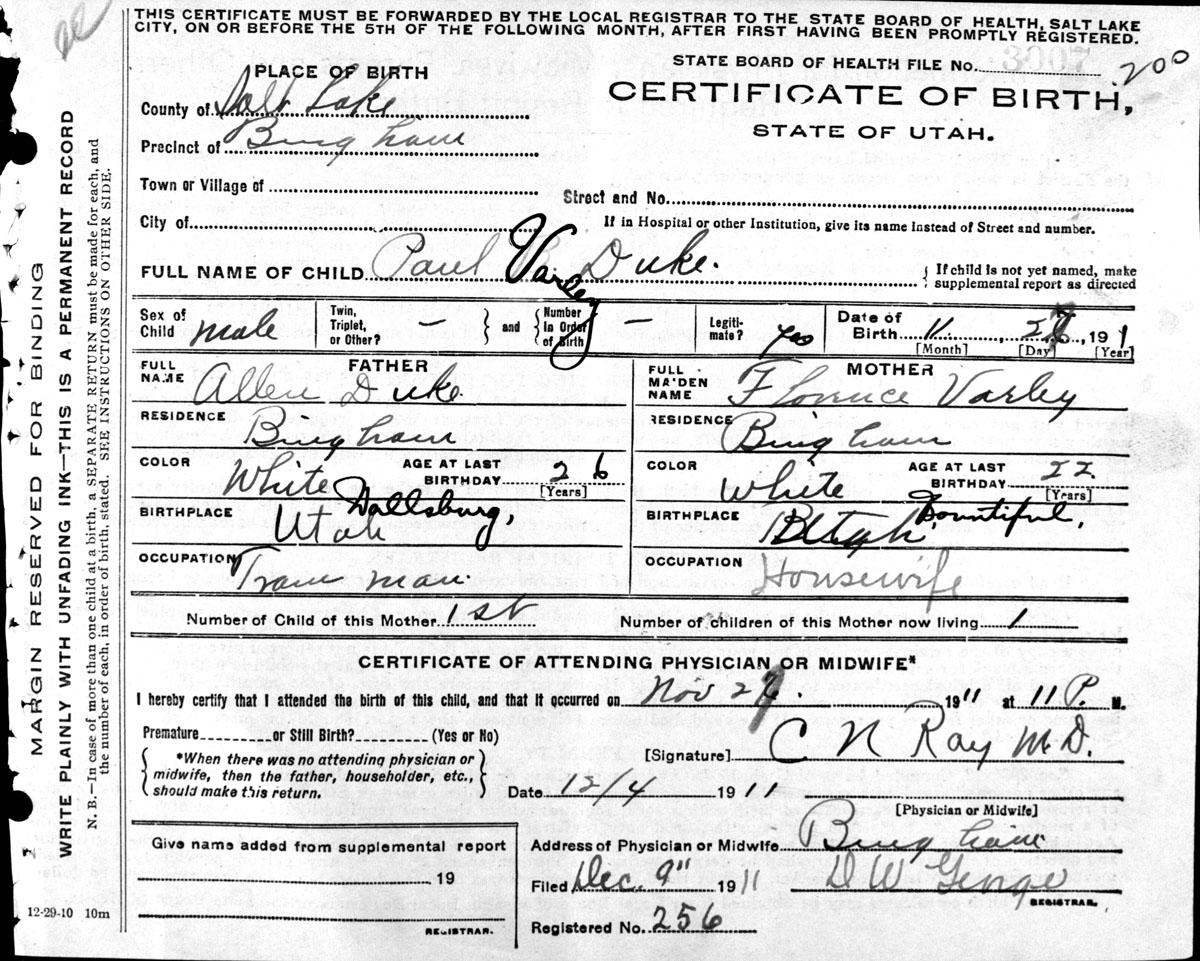 THIS CERTIFICATE MUST BE FORWARDED BY THE LOCAL REGISTRAR TO THE STATE BOARD OF HEALTH, SALT LAKE
CITY, ON OR BEFORE THE 5TH OF THE FOLLOWING MONTH, AFTER FIRST HAVING BEEN PROMPTLY REGISTERED.
STATE BOARD OF HEALTH FILE No. 200
CERTIFICATE OF BIRTH,
STATE OF UTAH.
PLACE OF BIRTH
County of Salt Lake
Precinct of Bingham
Town or Village of
Street and No.
City of
If in Hospital or other Institution, give its name instead of Street and number.
FULL NAME OF CHILD Paul Varley Duke.
{ If child is not yet named, make supplemental report as directed
Sex of Child male
Twin, Triplet, or Other? — } and { Number in Order of Birth —
Legitimate? yes
Date of Birth 11, 191 1
[Month] [Day] [Year]
FATHER
FULL NAME Allen Duke.
RESIDENCE Bingham
COLOR White
AGE AT LAST BIRTHDAY 26 [Years]
BIRTHPLACE Wallsburg, Utah
OCCUPATION Tram man.
MOTHER
FULL MAIDEN NAME Florence Varley
RESIDENCE Bingham
COLOR White
AGE AT LAST BIRTHDAY 22 [Years]
BIRTHPLACE Bountiful,
OCCUPATION Housewife
Number of Child of this Mother 1st
Number of children of this Mother now living 1
CERTIFICATE OF ATTENDING PHYSICIAN OR MIDWIFE*
I hereby certify that I attended the birth of this child, and that it occurred on Nov 19 11 at 11 P. M.
Premature or Still Birth? (Yes or No)
[Signature] C N Ray M.D.
{ *When there was no attending physician or midwife, then the father, householder, etc., should make this return. }
Date 12/4 1911
[Physician or Midwife]
Address of Physician or Midwife Bingham
Filed Dec. 9" 1911 D W George
REGISTRAR.
Registered No. 256
Give name added from supplemental report
19
REGISTRAR.
12-29-10 10m
MARGIN RESERVED FOR BINDING
WRITE PLAINLY WITH UNFADING INK—THIS IS A PERMANENT RECORD
N. B.—In case of more than one child at a birth, a SEPARATE RETURN must be made for each, and
the number of each, in order of birth, stated. SEE INSTRUCTIONS ON OTHER SIDE.